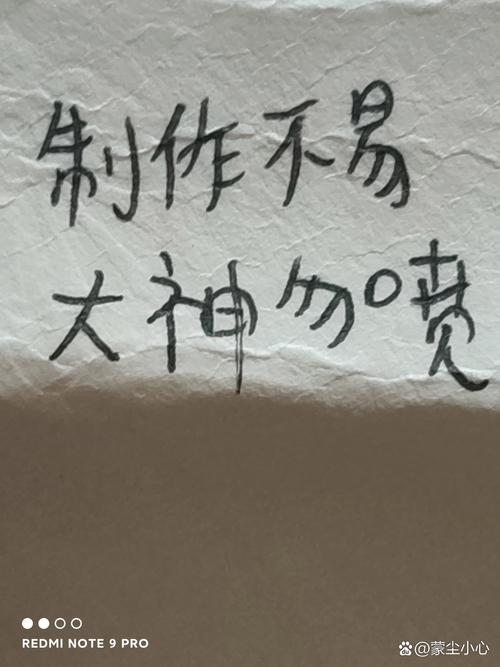 制作不易
大神勿喷
REDMI NOTE 9 PRO
@蒙尘小心